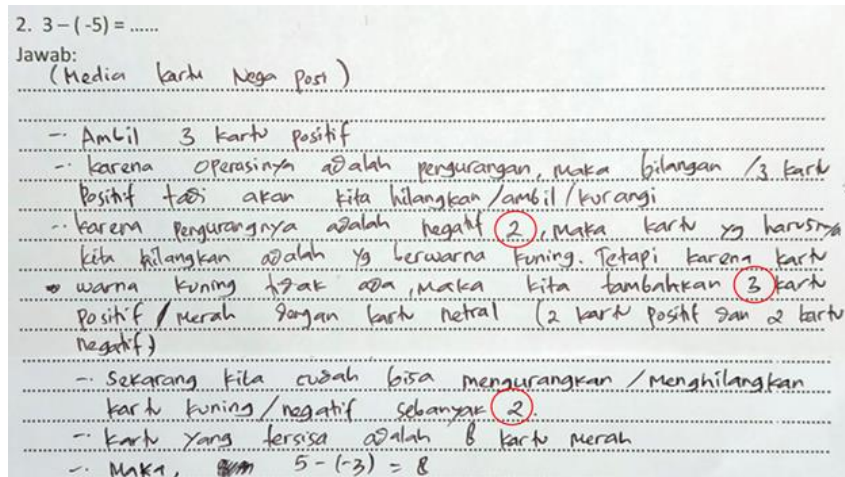 2. 3 – ( -5) = ......
Jawab:
(Media kartu Nega Posi)
-. Ambil 3 kartu positif
-. karena operasinya adalah pengurangan, maka bilangan /3 kartu
Positif tadi akan kita hilangkan /ambil / kurangi
-. karena pengurangnya adalah negatif 2, maka kartu yg harusnya
kita hilangkan adalah yg berwarna kuning. Tetapi karena kartu
warna kuning tidak ada, maka kita tambahkan 3 kartu
Positif / Merah dengan kartu netral (2 kartu positif dan 2 kartu
negatif)
-. Sekarang kita sudah bisa mengurangkan / menghilangkan
kartu kuning / negatif sebanyak 2.
-. kartu yang tersisa adalah 8 kartu merah
-. Maka, 5 - (-3) = 8